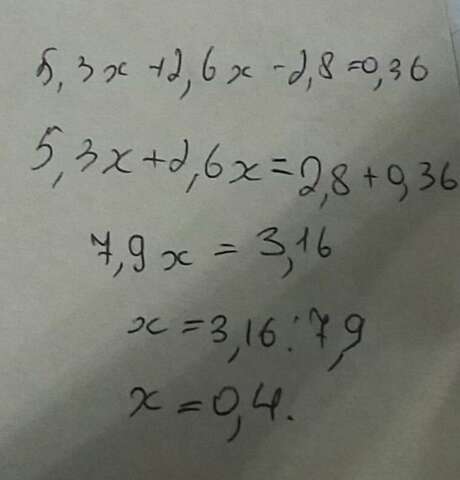 5,3x+2,6x-2,8=0,36
5,3x+2,6x=2,8+0,36
7,9x=3,16
x=3,16:7,9
x=0,4.